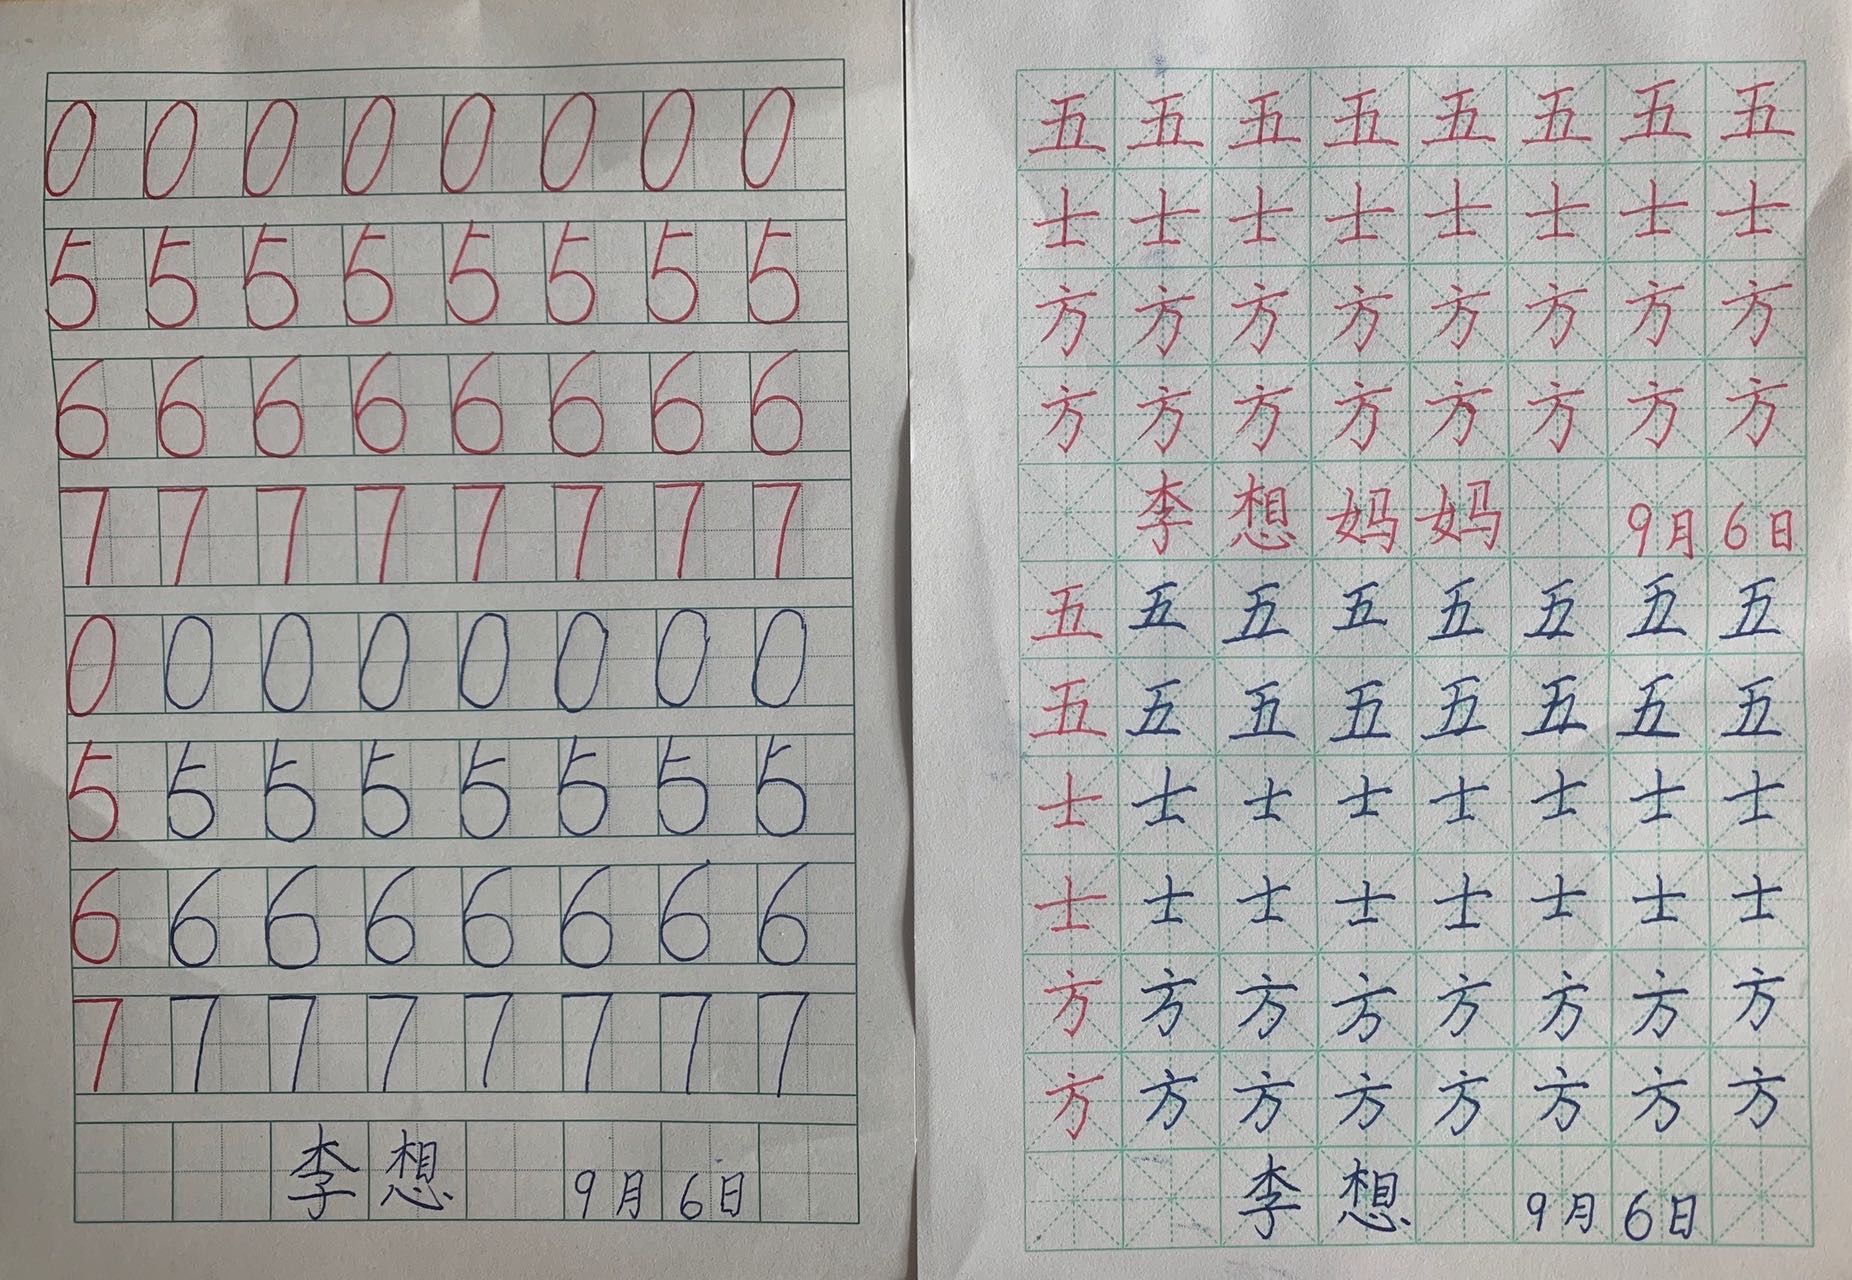 0 0 0 0 0 0 0 0
5 5 5 5 5 5 5 5
6 6 6 6 6 6 6 6
7 7 7 7 7 7 7 7
0 0 0 0 0 0 0 0
5 5 5 5 5 5 5 5
6 6 6 6 6 6 6 6
7 7 7 7 7 7 7 7
李想 9月6日
五五五五五五五五
士士士士士士士士
方方方方方方方方
方方方方方方方方
李想妈妈 9月6日
五五五五五五五五
五五五五五五五五
士士士士士士士士
士士士士士士士士
方方方方方方方方
方方方方方方方方
李想 9月6日